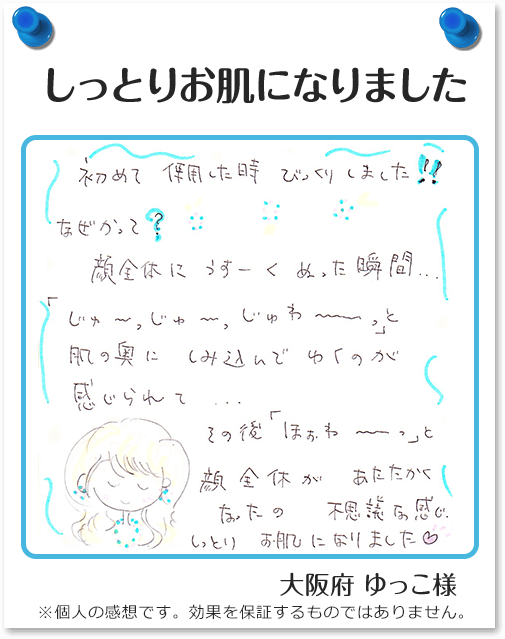 しっとりお肌になりました
初めて 使用した時 びっくりしました!!
なぜかって?
顔全体に うすーく ぬった瞬間...
「じゅ〜っじゅ〜っ、じゅわ〜〜っ」と
肌の奥に しみ込んで ゆくのが
感じられて ...
その後「ほぉわ〜〜っ」と
顔全体が あたたかく
なったの 不思議な感じ
しっとり お肌になりました♡
大阪府 ゆっこ様
※個人の感想です。効果を保証するものではありません。